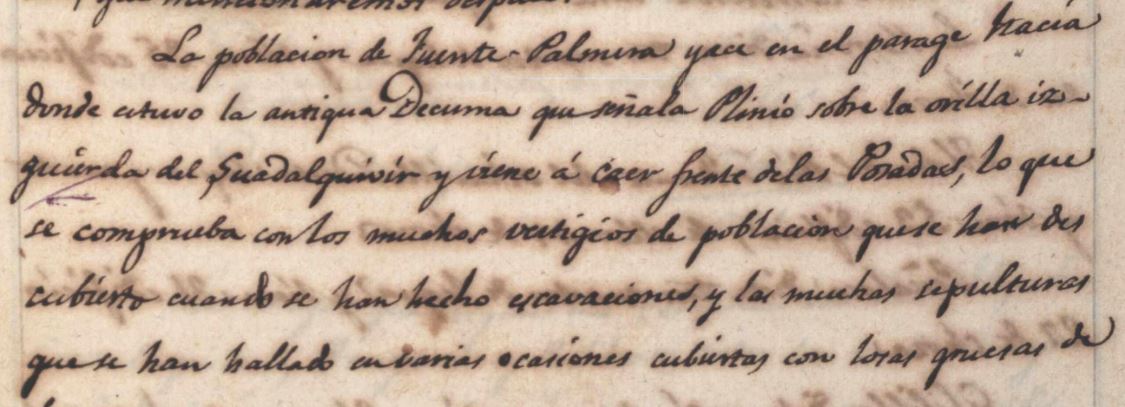 que mencionaremos despues.
La poblacion de Fuente-Palmera yace en el parage hacia
donde estuvo la antigua Decuma que señala Plinio sobre la orilla iz-
quierda del Guadalquivir y viene á caer frente delas Posadas, lo que
se comprueba con los muchos vestigios de poblacion que se han des
cubierto cuando se han hecho escavaciones, y las muchas sepulturas
que se han hallado en varias ocasiones cubiertas con losas gruesas de